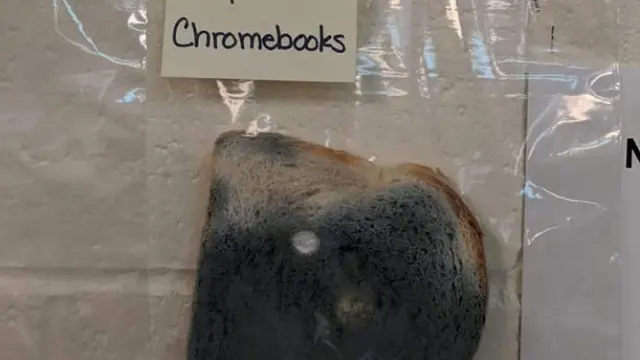 Chromebooks
N